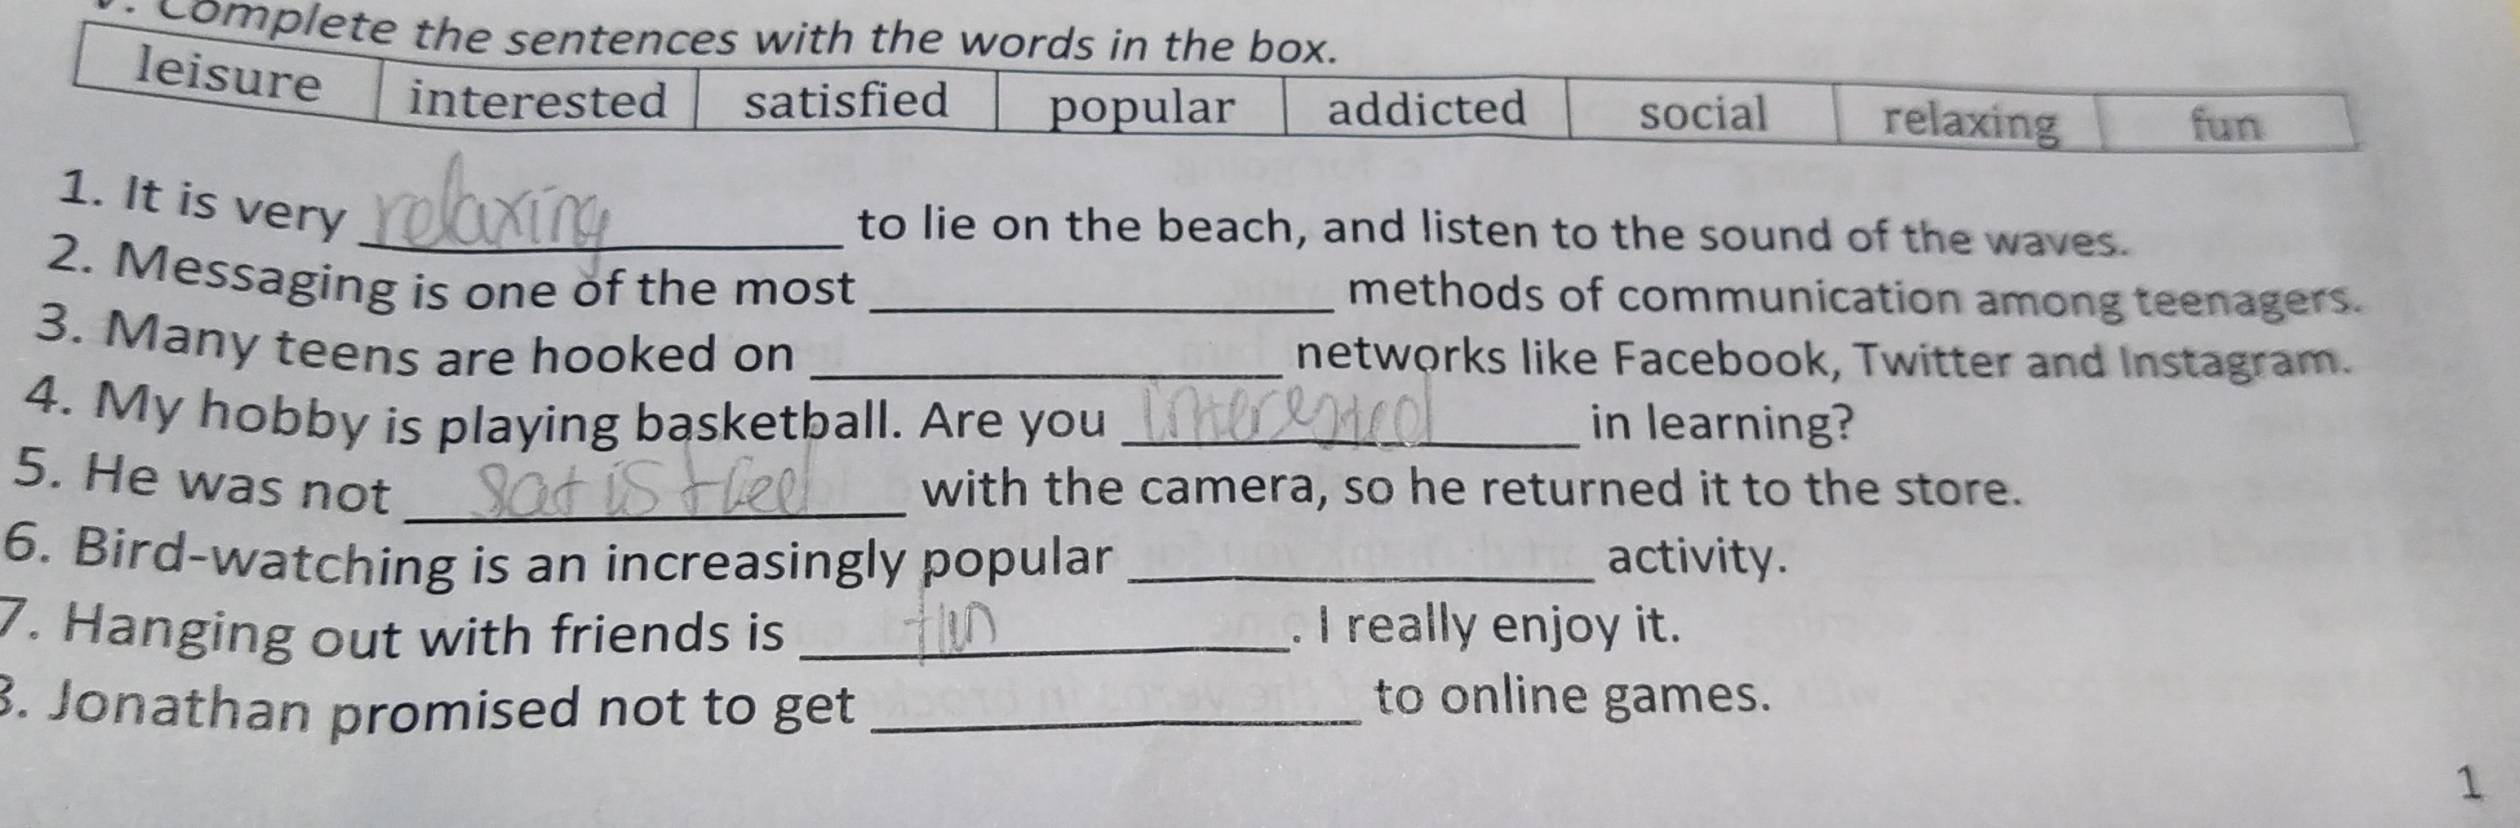 . Complete the sentences with the words in the box.
leisure interested satisfied popular addicted social relaxing fun
1. It is very relaxing to lie on the beach, and listen to the sound of the waves.
2. Messaging is one of the most ______ methods of communication among teenagers.
3. Many teens are hooked on ______ networks like Facebook, Twitter and Instagram.
4. My hobby is playing basketball. Are you interested in learning?
5. He was not satisfied with the camera, so he returned it to the store.
6. Bird-watching is an increasingly popular ______ activity.
7. Hanging out with friends is fun. I really enjoy it.
8. Jonathan promised not to get ______ to online games.
1